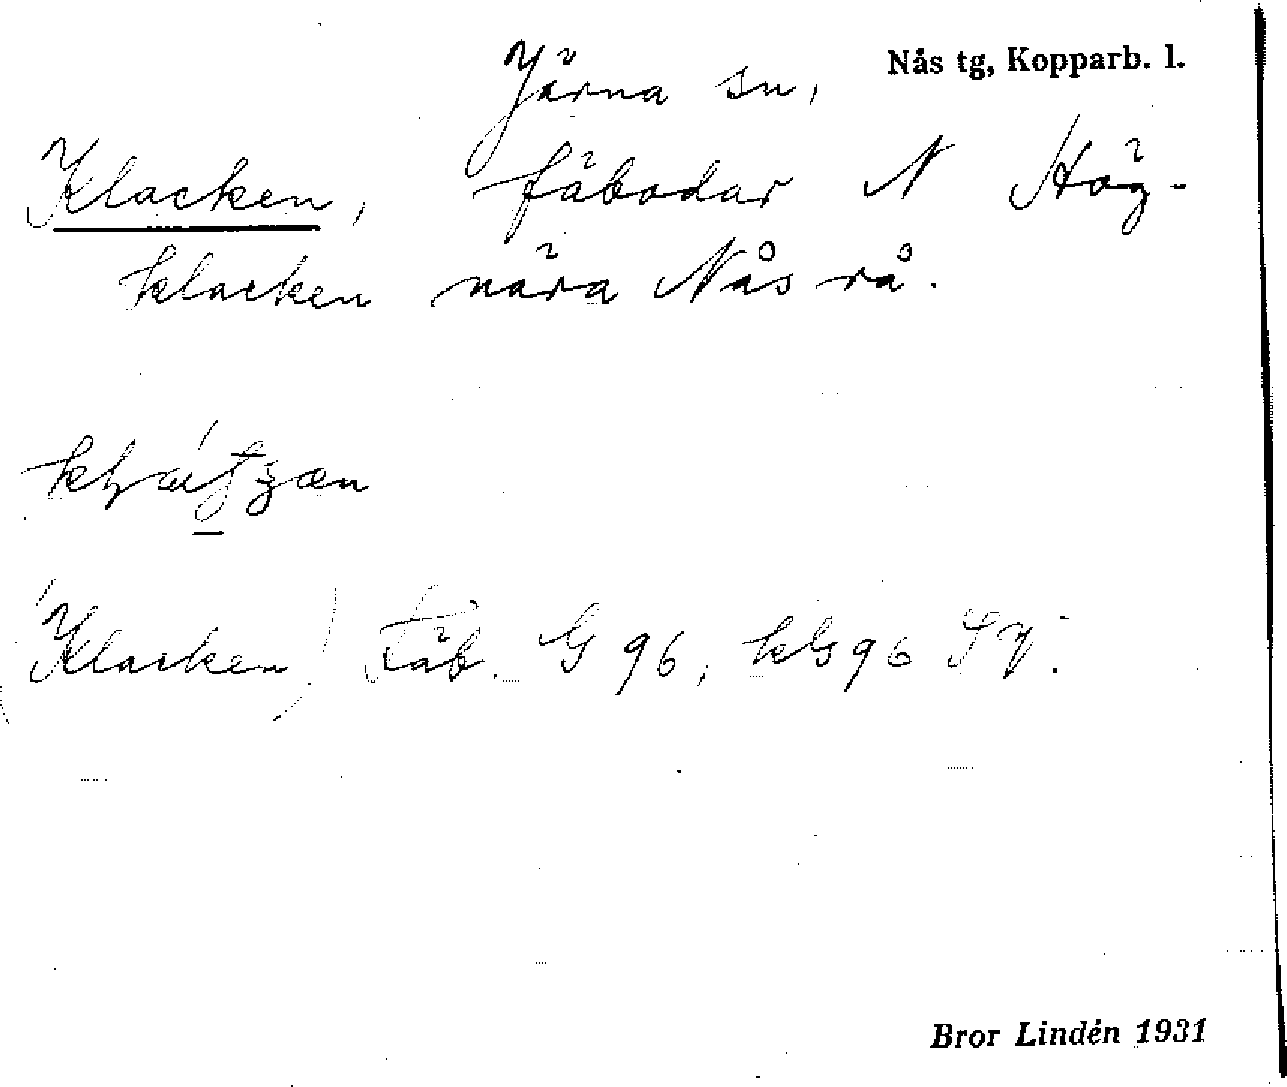 Järna sn, Nås tg, Kopparb. l.
Klacken, fäbodar N Hög-
klacken nära Nås rå.
(Klacken) Fäb. G 96, kG96 SV.
Bror Lindén 1931